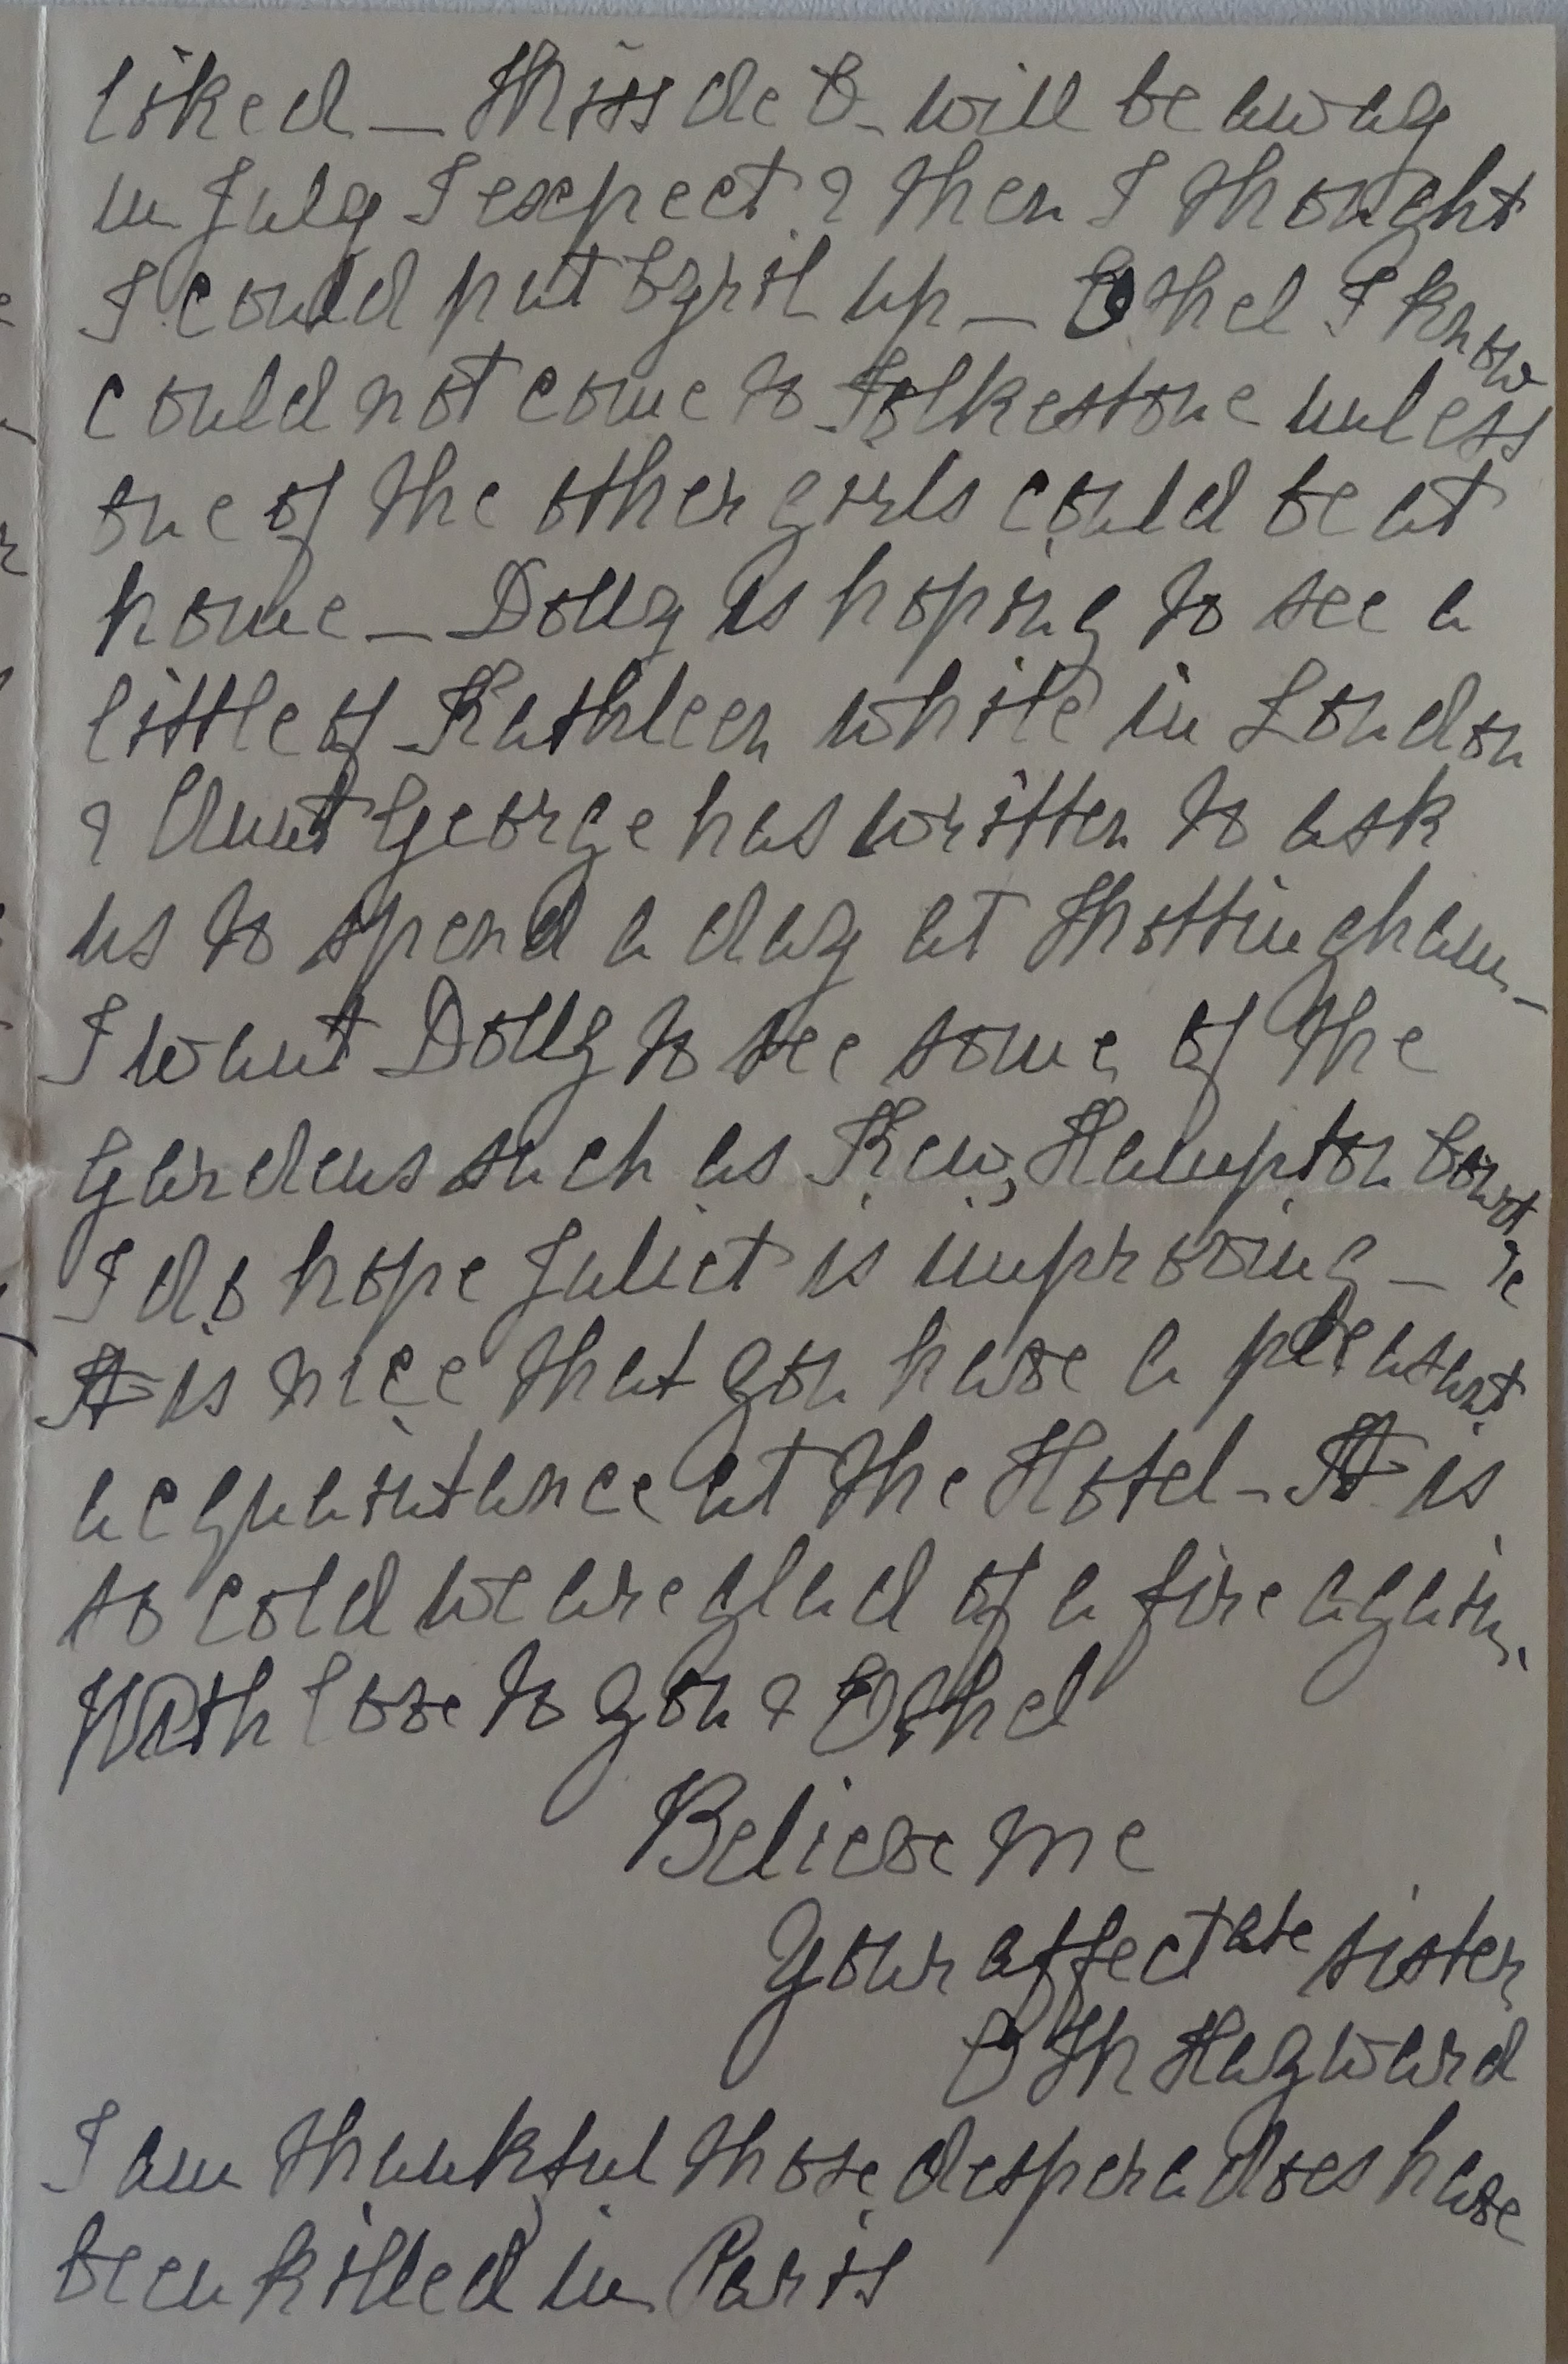 liked — Miss de B - will be away
in July I expect & then I thought
I could put Cyril up — Ethel I know
could not come to Folkestone unless
one of the other girls could be at
home — Dolly is hoping to see a
little of Kathleen while in London
& Aunt George has written to ask
us to spend a day at Mottingham -
I want Dolly to see some of the
Gardens such as Kew, Hampton Court
&c
I do hope Juliet is improving —
It is nice that you have a pleasant
acquaintance at the Hotel - It is
so cold we are glad of a fire again.
With love to you & Ethel
Believe me
Your affectate sister
E M Hayward
I am thankful those desperadoes have
been killed in Paris